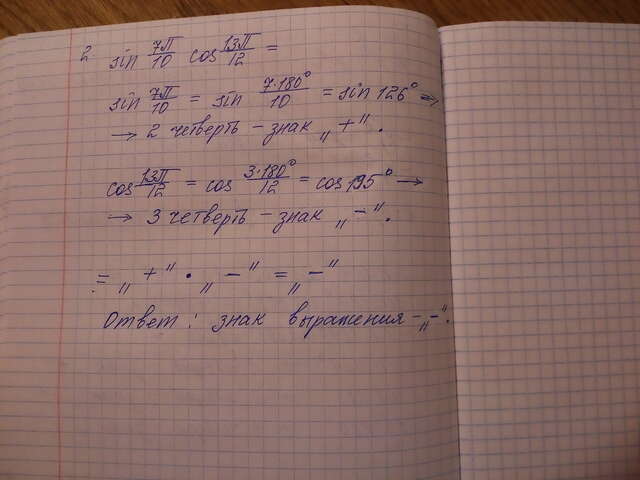 2 sin 7π/10 cos 13π/12 =
sin 7π/10 = sin 7·180°/10 = sin 126° →
→ 2 четверть – знак „+".
cos 13π/12 = cos 3·180°/12 = cos 195° →
→ 3 четверть – знак „–".
= „+" · „–" = „–"
Ответ: знак выражения – „–".